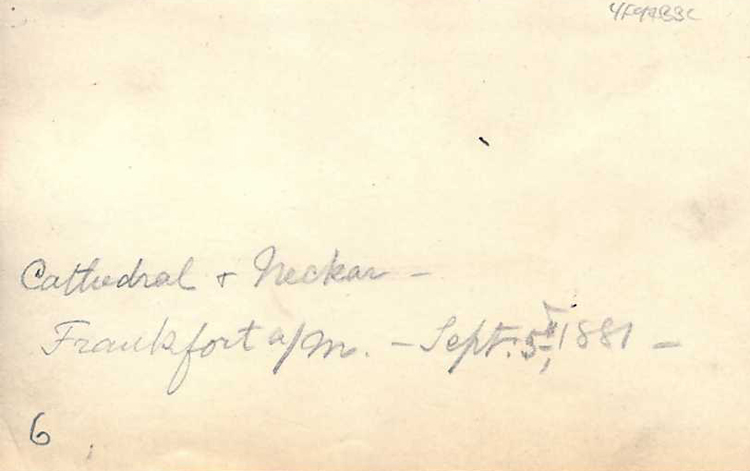 Cathedral + Neckar –
Frankfort a/m. – Sept. 5th, 1881 –
6